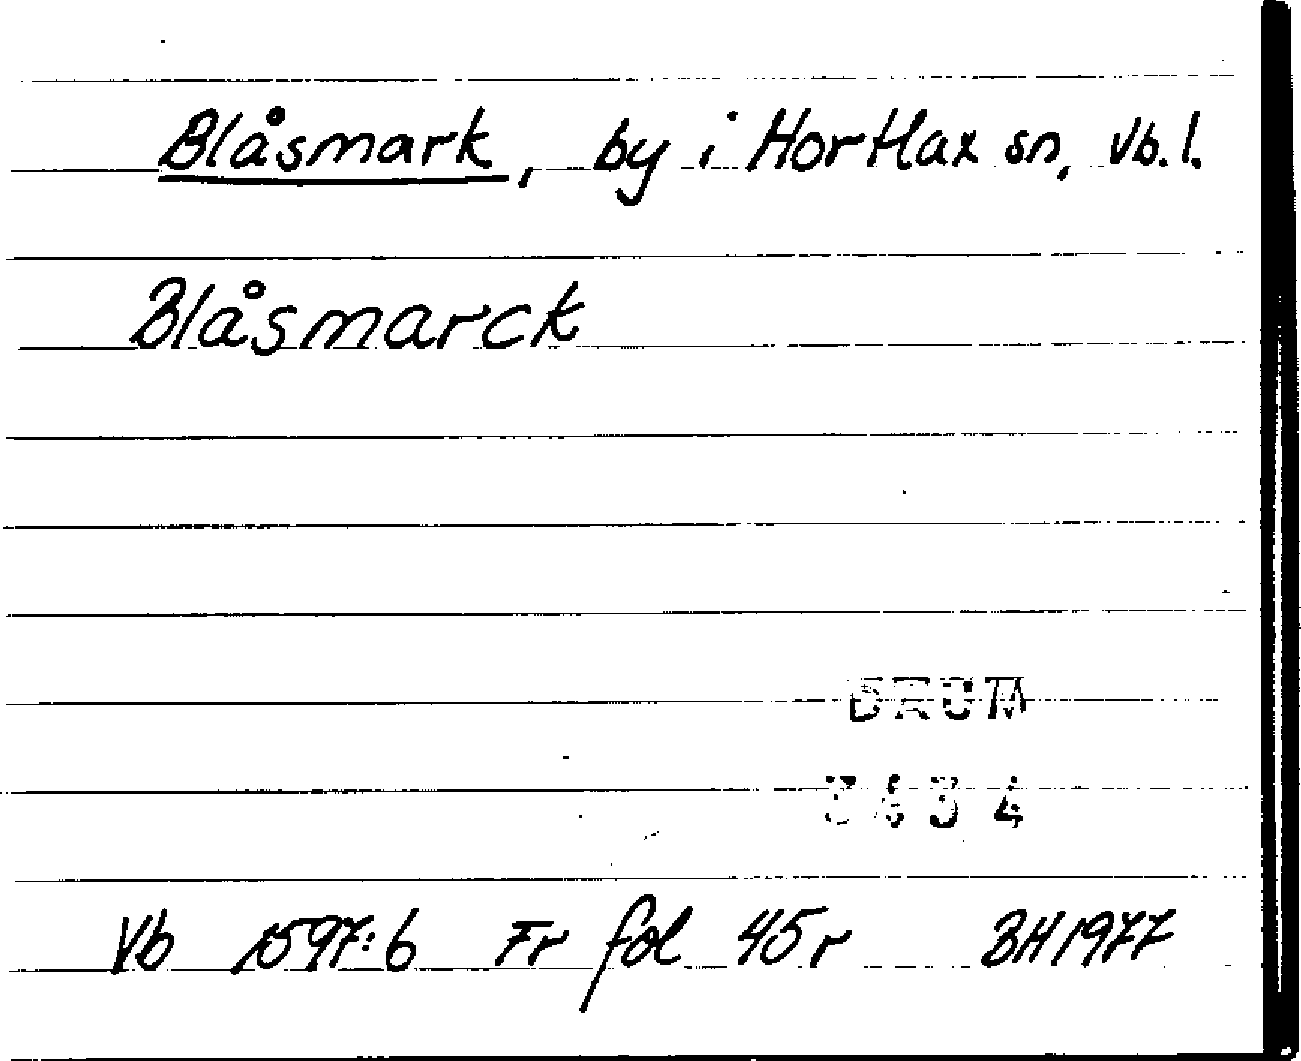 Blåsmark, by i Hortlax sn, Vb. l.
Blåsmarck
DAUM
3434
Vb 1597:6 Fr fol 45 r BH 1977